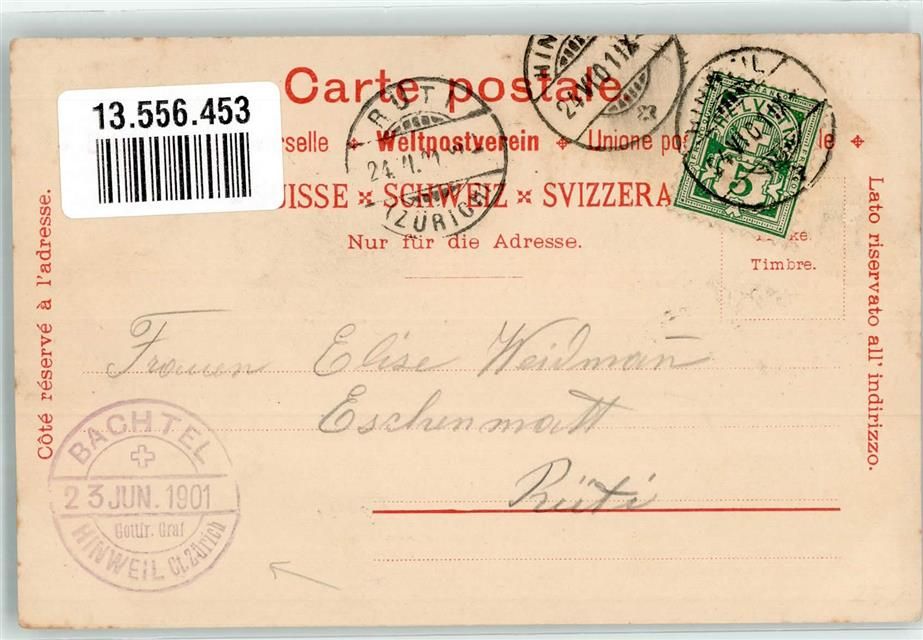 Carte postale
13.556.453
rselle ✦ Weltpostverein ✦ Unione pos le ✦
UISSE ※ SCHWEIZ ※ SVIZZERA
Nur für die Adresse.
Timbre.
Côté réservé à l'adresse.
Lato riservato all' indirizzo.
RÜTI
(ZÜRICH)
HIN
24.VI.01.IX
HELVETIA
5
Frauen Elise Weidmann
Eschenmatt
Rüti
BACHTEL
23 JUN. 1901
Gottfr. Graf
HINWEIL Ct. Zürich